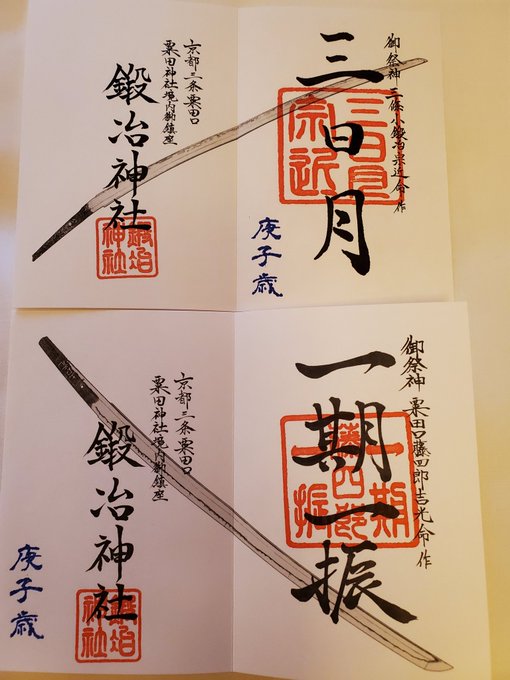 御祭神 三條小鍛冶宗近命 作
三日月
三日月
宗近
庚子歳
京都三条粟田口
粟田神社境内御鎮座
鍛冶神社
鍛冶
神社
御祭神 粟田口藤四郎吉光命 作
一期一振
一期
藤四郎
一振
京都三条粟田口
粟田神社境内御鎮座
鍛冶神社
鍛冶
神社
庚子歳